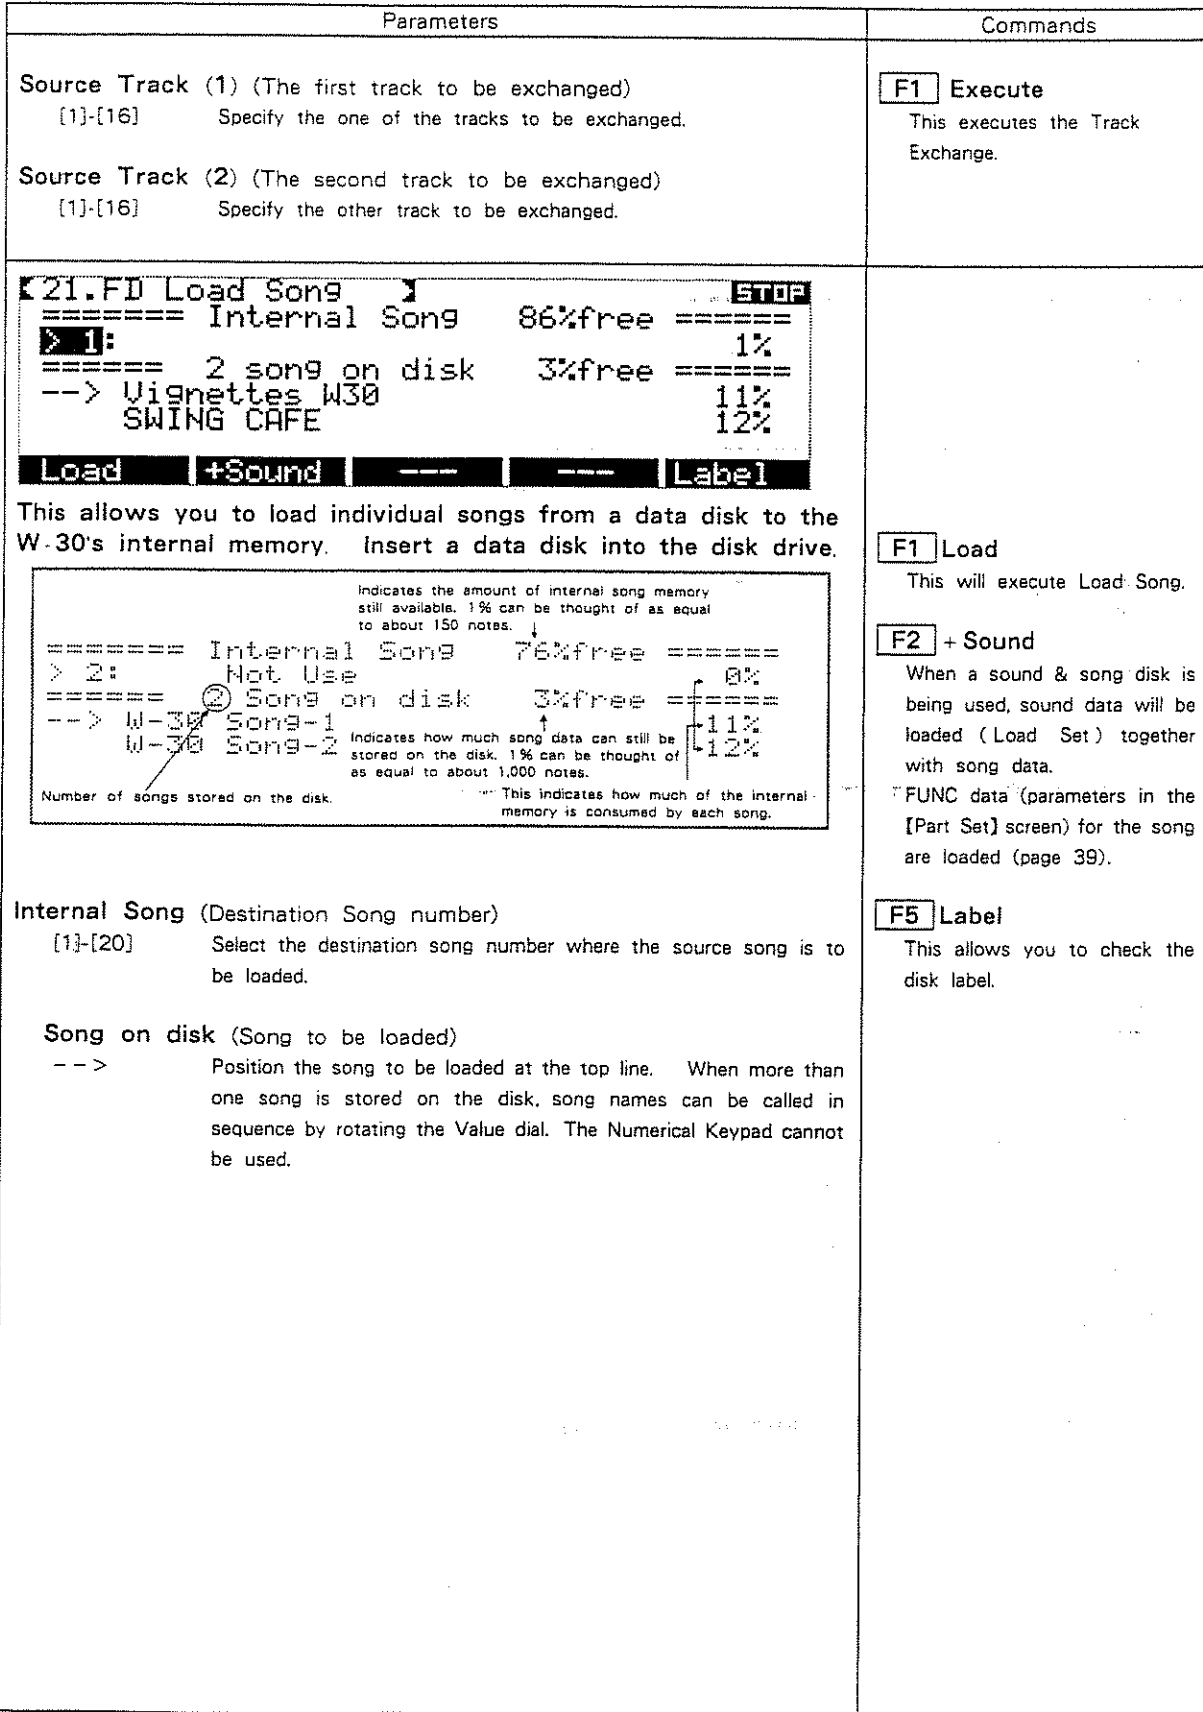 Parameters
Commands
Source Track (1) (The first track to be exchanged)
[1]-[16] Specify the one of the tracks to be exchanged.
Source Track (2) (The second track to be exchanged)
[1]-[16] Specify the other track to be exchanged.
F1 Execute
This executes the Track
Exchange.
【21.FD Load Song 】 STOP
======= Internal Song 86%free ======
> 1: 1%
====== 2 song on disk 3%free ======
--> Vignettes W30 11%
SWING CAFE 12%
Load +Sound --- --- Label
This allows you to load individual songs from a data disk to the
W-30's internal memory. Insert a data disk into the disk drive.
Indicates the amount of internal song memory
still available. 1% can be thought of as equal
to about 150 notes.
======= Internal Song 76%free ======
> 2: Not Use 0%
====== 2 Song on disk 3%free ======
--> W-30 Song-1 11%
W-30 Song-2 12%
Indicates how much song data can still be
stored on the disk. 1% can be thought of
as equal to about 1,000 notes.
Number of songs stored on the disk.
This indicates how much of the internal
memory is consumed by each song.
Internal Song (Destination Song number)
[1]-[20] Select the destination song number where the source song is to
be loaded.
Song on disk (Song to be loaded)
--> Position the song to be loaded at the top line. When more than
one song is stored on the disk, song names can be called in
sequence by rotating the Value dial. The Numerical Keypad cannot
be used.
F1 Load
This will execute Load Song.
F2 + Sound
When a sound & song disk is
being used, sound data will be
loaded (Load Set) together
with song data.
FUNC data (parameters in the
[Part Set] screen) for the song
are loaded (page 39).
F5 Label
This allows you to check the
disk label.